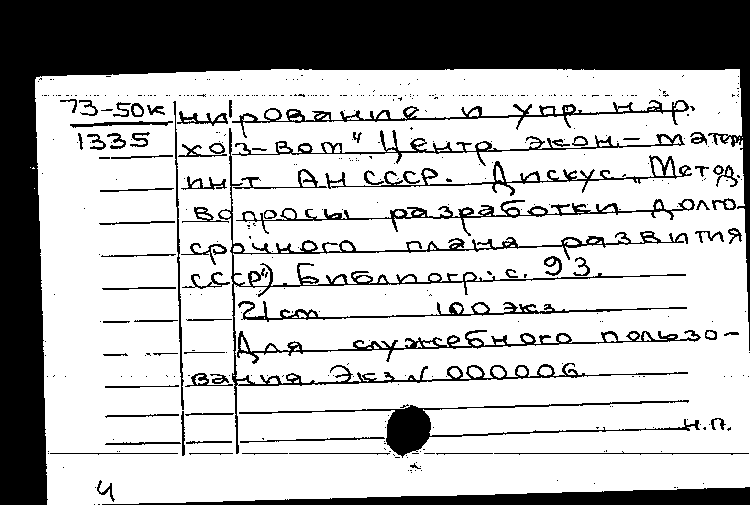 73-50к
1335
нирование и упр. нар.
хоз-вом" Центр. экон.-матем.
ин-т АН СССР. Дискус. „Метод.
вопросы разработки долго-
срочного плана развития
СССР"). Библиогр.: с. 93.
21 cm 100 экз.
Для служебного пользо-
вания. Экз № 000006.
Н.П.
4